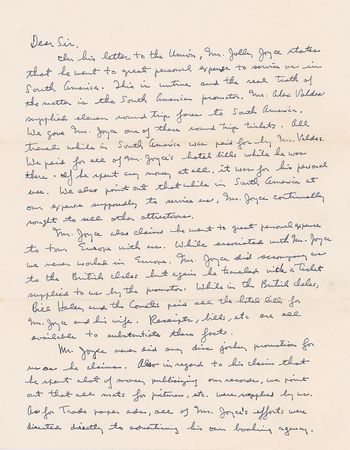 Dear Sir,
In his letter to the Union, Mr. Jolly Joyce states
that he went to great personal expense to service us in
South America. This is untrue and the real truth of
the matter is the South American promoter, Mr. Alex Valdez
supplied eleven round trip fares to South America.
We gave Mr. Joyce one of these round trip tickets. All
travel while in South America was paid for by Mr. Valdez.
We paid for all of Mr. Joyce's hotel bills while he was
there. If he spent any money at all, it was for his personal
use. We also point out that while in South America at
our expense supposedly to service us, Mr. Joyce continually
sought to sell other attractions.
Mr. Joyce also claims he went to great personal expense
to tour Europe with us. While associated with Mr. Joyce
we never worked in Europe. Mr. Joyce did accompany us
to the British Isles but again he traveled with a ticket
supplied to us by the promotor. While in the British Isles,
Bill Haley and the Comets paid all the hotel bills for
Mr. Joyce and his wife. Receipts, bills, etc are all
available to substantiate these facts.
Mr Joyce never did any disc jockey promotion for
us as he claims. Also in regard to his claim that
he spent alot of money publicizing our records, we point
out that all mats for pictures, etc. were supplied by us.
As for Trade paper ads, all of Mr. Joyce's efforts were
directed directly to advertising his own booking agency.